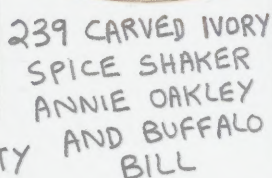 239 CARVED IVORY
SPICE SHAKER
ANNIE OAKLEY
TY AND BUFFALO
BILL